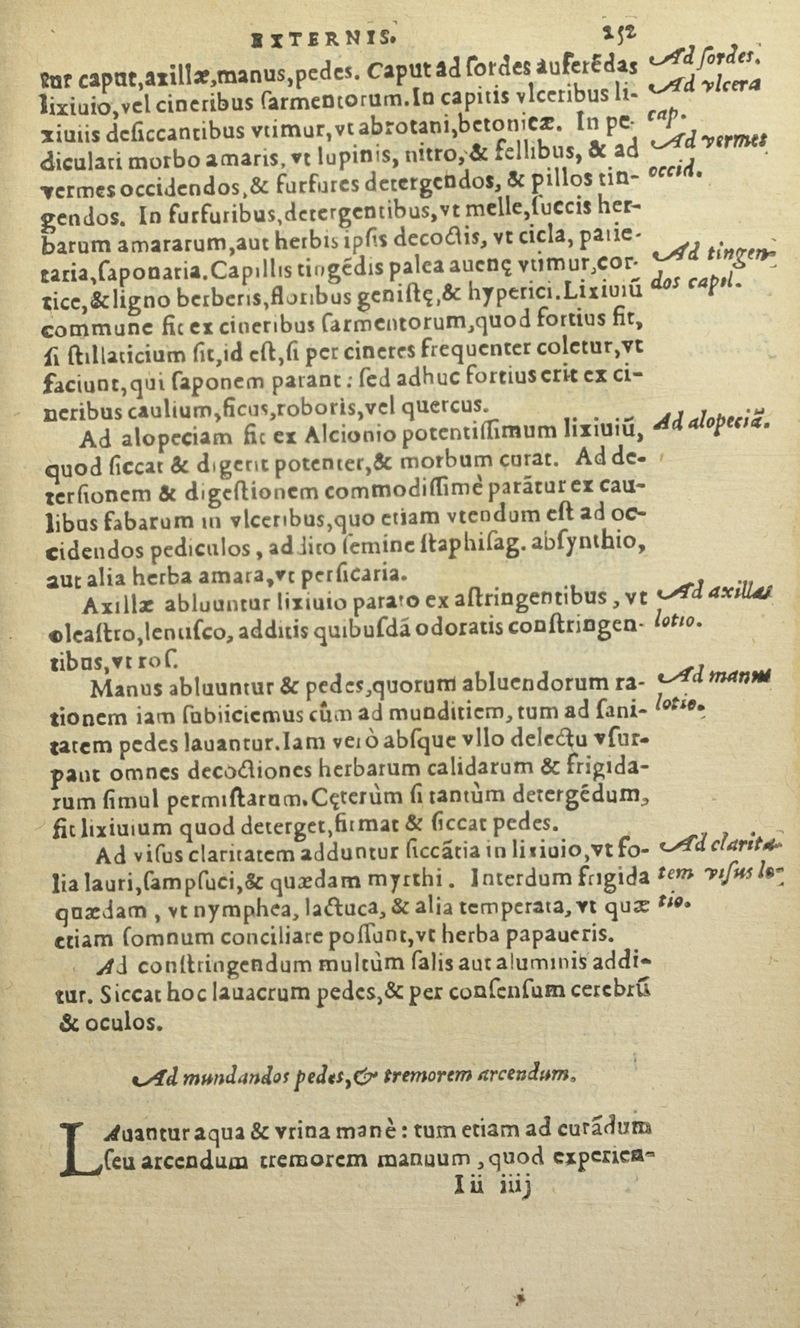 EXTERNIS. 252
tur caput,axillæ,manus,pedes. Caput ad ſordes auferẽdas
lixiuio,vel cineribus ſarmentorum.In capitis vlceribus li-
xiuiis deſiccantibus vtimur,vt abrotani,betonicæ. In pe-
diculari morbo amaris, vt lupinis, nitro,& fellibus, & ad
vermes occidendos,& furfures detergendos, & pillos tin-
gendos. In furfuribus,detergentibus,vt melle,ſuccis her-
barum amararum,aut herbis ipſis decoctis, vt cicla, parie-
taria,ſaponaria.Capillis tingẽdis palea auenę vtimur,cor-
tice,&ligno berberis,floribus geniſtę,& hyperici.Lixiuiũ
commune fit ex cineribus ſarmentorum,quod fortius fit,
ſi ſtillaticium ſit,id eſt,ſi per cineres frequenter coletur,vt
faciunt,qui ſaponem parant : ſed adhuc fortius erit ex ci-
neribus caulium,ficus,roboris,vel quercus.
Ad alopeciam fit ex Alcionio potentiſſimum lixiuiũ,
quod ſiccat & digerit potenter,& morbum curat. Ad de-
terſionem & digeſtionem commodiſſimè parãtur ex cau-
libus fabarum in vlceribus,quo etiam vtendum eſt ad oc-
cidendos pediculos , addito ſemine ſtaphiſag. abſynthio,
aut alia herba amara,vt perſicaria.
Axillæ abluuntur lixiuio parato ex aſtringentibus , vt
oleaſtro,lentiſco, additis quibuſdã odoratis conſtringen-
tibus,vt roſ.
Manus abluuntur & pedes,quorum abluendorum ra-
tionem iam ſubiiciemus cùm ad munditiem, tum ad ſani-
tatem pedes lauantur.Iam verò abſque vllo delectu vſur-
pant omnes decoctiones herbarum calidarum & frigida-
rum ſimul permiſtarum.Cęterùm ſi tantùm detergẽdum,
fit lixiuium quod deterget,firmat & ſiccat pedes.
Ad viſus claritatem adduntur ſiccãtia in lixiuio,vt fo-
lia lauri,ſampſuci,& quædam myrthi. Interdum frigida
quædam , vt nymphea, lactuca, & alia temperata, vt quæ
etiam ſomnum conciliare poſſunt,vt herba papaueris.
Ad conſtringendum multùm ſalis aut aluminis addi-
tur. Siccat hoc lauacrum pedes,& per conſenſum cerebrũ
& oculos.
Ad mundandos pedes,& tremorem arcendum.
LAuantur aqua & vrina manè : tum etiam ad curãdum
ſeu arcendum tremorem manuum , quod experien-
Iii iiij
Ad ſordes.
Ad vlcera
cap.
Ad vermes
occid.
Ad tingen-
dos capil.
Ad alopeciã.
Ad axillas
lotio.
Ad manus
lotio.
Ad clarita-
tem viſus lo-
tio.